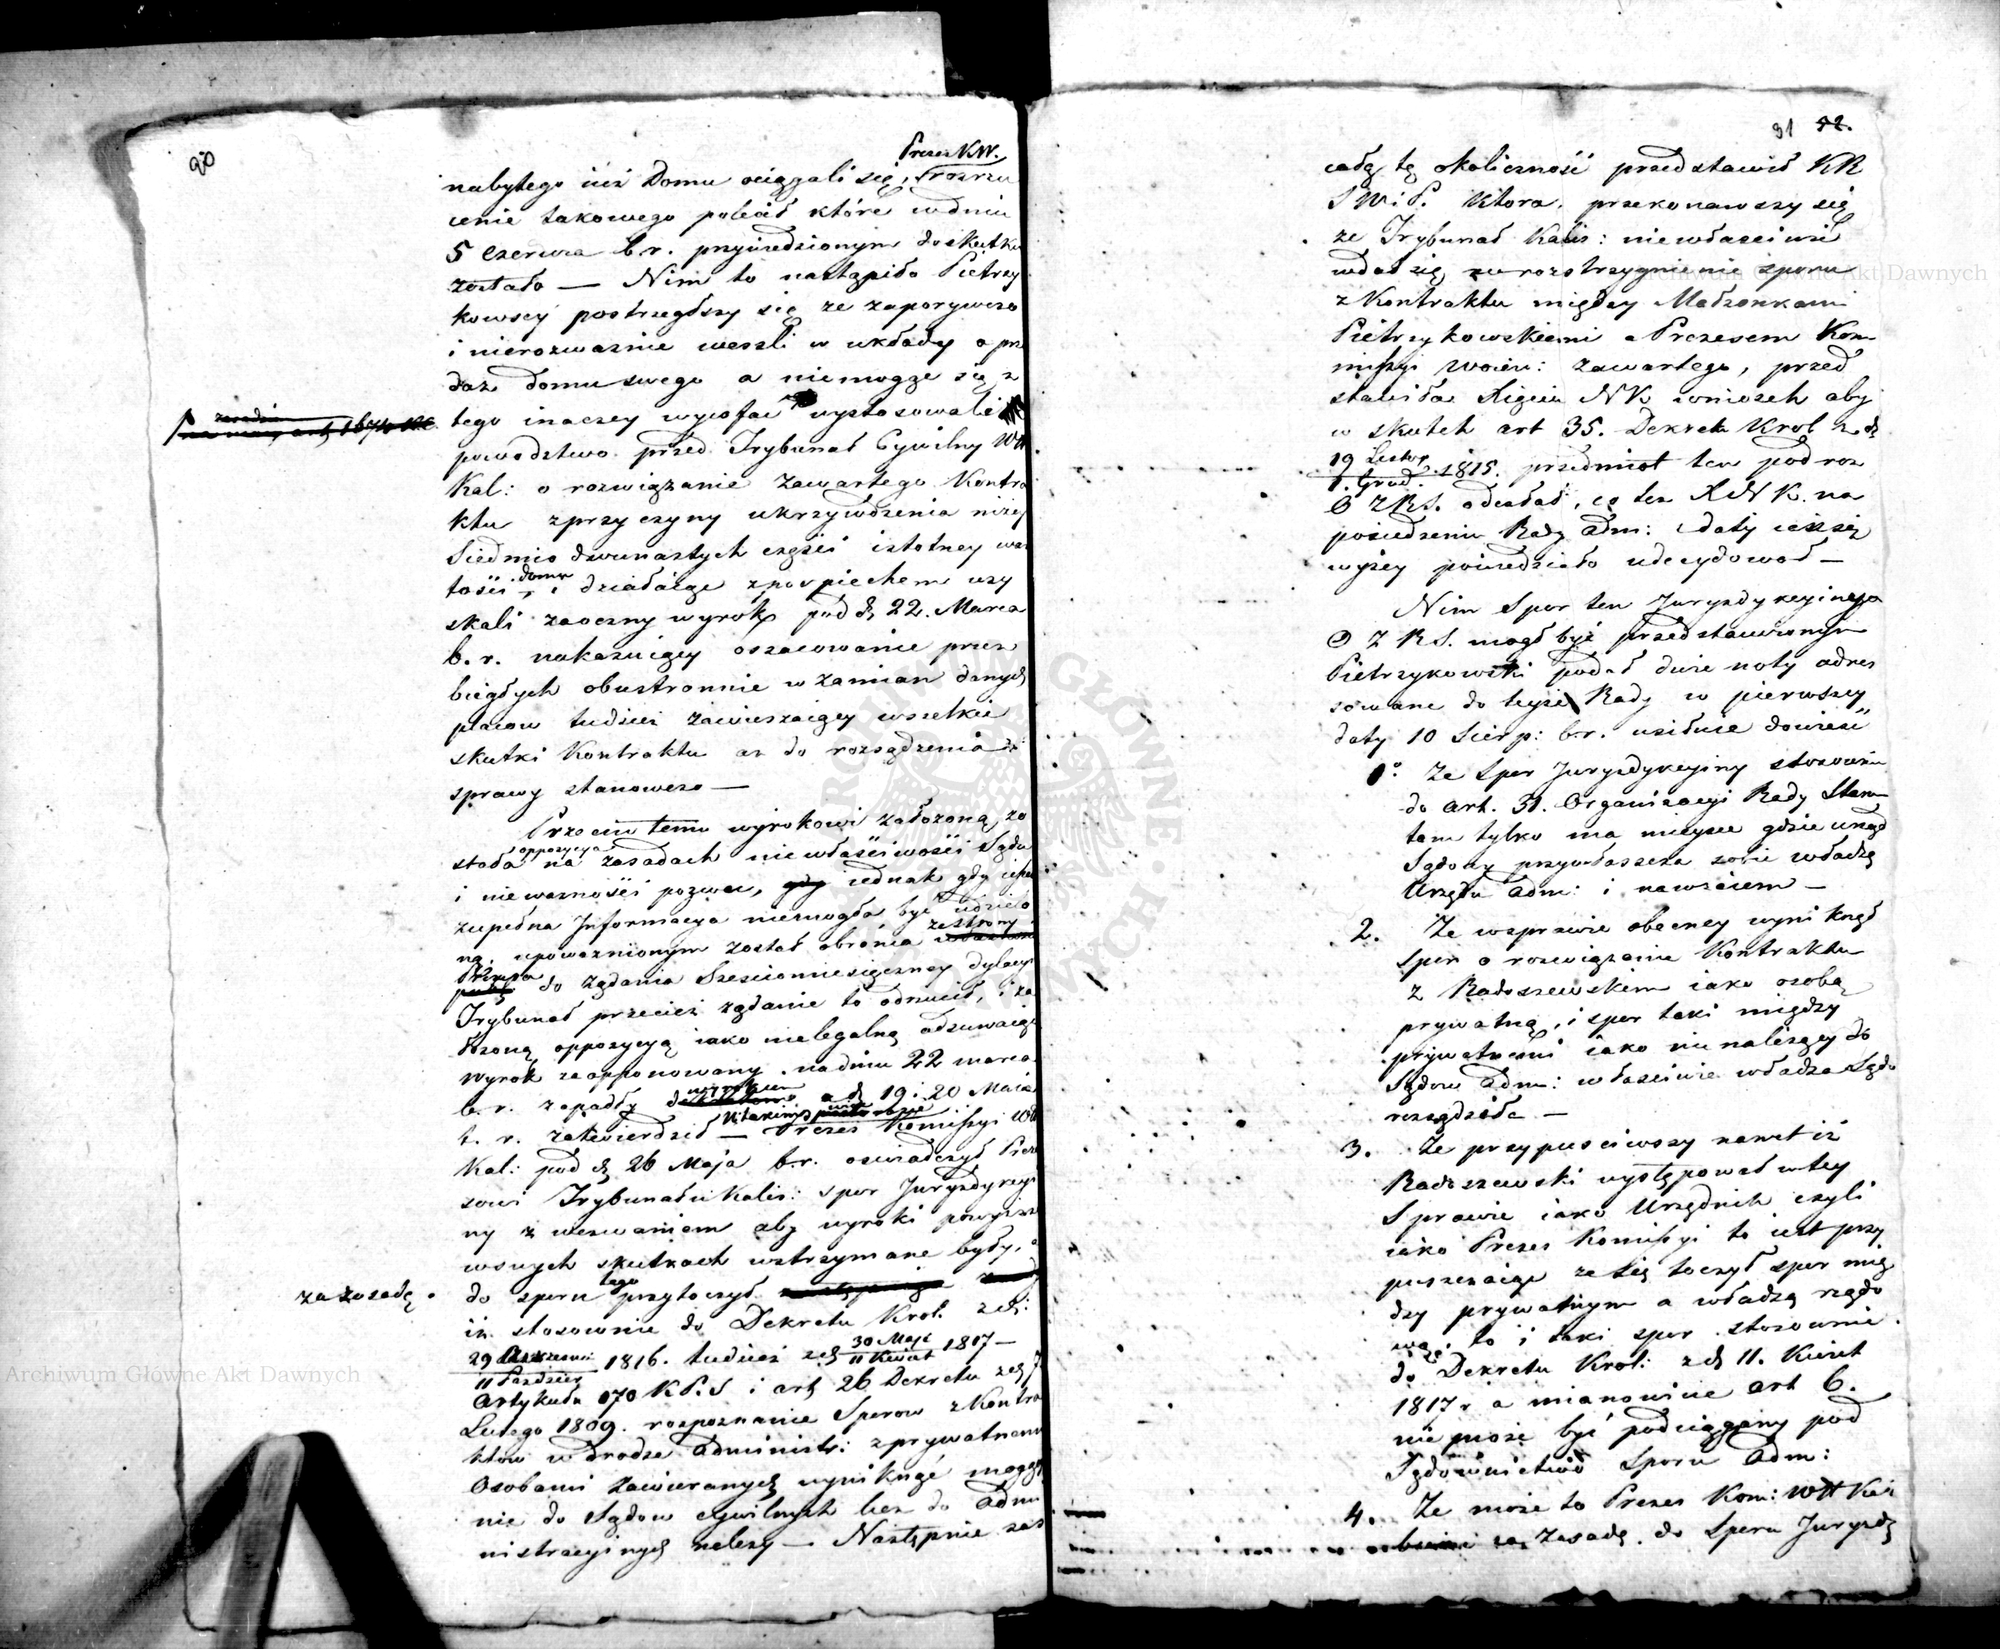 90
Prezes KW.
nabytego iuż Domu ociągali się, rozrzu
cenie takowego polecił które w dniu
5 Czerwca b. r. przywiedzionym do skutku
zostało — Nim to nastąpiło Pietrzy
kowscy postrzegłszy się że zaporywczo
i nierozważnie weszli w układy o prze
daż domu swego a niemogąc się z
tego inaczey wycofać wystosowali
powodztwo przed Trybunał Cywilny W
Kal: o rozwiązanie zawartego Kontra
ktu z przyczyny ukrzywdzenia niżey
Siedmio dwunastych części istotney war
tości domu działaiąc z pospiechem uzy
skali zaoczny wyrok pod d. 22. Marca
b. r. nakazuiący oszacowanie przez
biegłych obustronnie w zamian danych
placow tudzież zawieszaiący wszelkie
skutki Kontraktu aż do rozsądzenia
sprawy stanowczo —
Przeciw temu wyrokowi założoną zo
stała oppozycya na zasadach niewłaściwości Sądu
i nieważności pozwu, jednak gdy
zupełna Informacya niemogła być udzielo
ną, upoważnionym został obrońca ze strony
Prezesa do żądania Sześciomiesięczney dylacyi
Trybunał przecież żądanie to odrzucił, i za
łożoną oppozycyą iako nielegalną odsuwaiąc
wyrok zaopponowany na dniu 22 marca
b. r. zapadły wyrokiem a d. 19 i 20 Maia
b. r. zatwierdził — Prezes Kommissyi W
Kal: pod d. 26 Maja b. r. oswiadczył Preze
sowi Trybunału Kalis: spor Juryzdykcyi
ny z wezwaniem aby wyroki powyższe
w swych skutkach wstrzymane były,
za zasadę do sporu tego przytoczył
iż stosownie do Dekretu Krol. z d.
29 Września
11 Paździer 1816. tudzież z d. 30 Maja
11 Kwiet 1817 —
Artykułu 170 K.P.S i art 26 Dekretu z d. 7
Lutego 1809. rozpoznanie Sporow z Kontra
ktow w drodze administr: z prywatnemi
Osobami zawieranych wyniknąć mogąc
nie do Sądow cywilnych lecz do Admi
nistracyinych należy — Następnie zaś
91 92.
całą tę okoliczność przedstawił KR
S W i P. Ktora, przekonawszy się
że Trybunał Kalis: niewłaściwie
wdał się w rozstrzygnienie sporu
z Kontraktu między Małżonkami
Pietrzykowskiemi a Prezesem Kom
missyi Woiew: zawartego, przed
stawiła Xięciu NK. wniosek aby
w skutek art 35. Dekretu Krol z d.
19 Listop.
1. Grud. 1815. przedmiot ten pod roz
O Z R S. odesłać, co też X N K. na
posiedzeniu Rady Adm: daty iak się
wyżey powiedziało udecydował —
Nim Spor ten Juryzdykcyiny
O Z R S. mogł być przedstawionym
Pietrzykowski podał dwie noty adres
sowane do teyże Rady w pierwszey
daty 10 Sierp: b. r. usiłuie dowieść
1° Że Spor Juryzdykcyiny stosownie
do art. 31. Organizacyi Rady Stanu
tam tylko ma mieysce gdzie urząd
Sądowy przywłaszcza sobie władzę
Urzędu Adm: i nawzaiem —
2. Że w sprawie obecney wyniknął
spor o rozwiązanie Kontraktu
z Radoszewskim iako osobą
prywatną, i spor taki między
prywatnemi iako nienależący do
Sądow Adm: właściwie władza Sądo
rozsądziła —
3. Że przypuściwszy nawet iż
Radoszewski występował w tey
Sprawie iako Urzędnik czyli
iako Prezes Kommissyi to iest przy
puszczaiąc że się toczył spor mię
dzy prywatnym a władzą rządo
wą, to i taki spor stosownie
do Dekretu Krol: z d. 11. Kwiet
1817 r a mianowicie art 6.
nie może być podciągany pod
Sądownictwo Sporu Adm:
4. Że może to Prezes Kom:
za Zasadę do Sporu Juryzdy
Archiwum Główne Akt Dawnych
Archiwum Główne Akt Dawnych